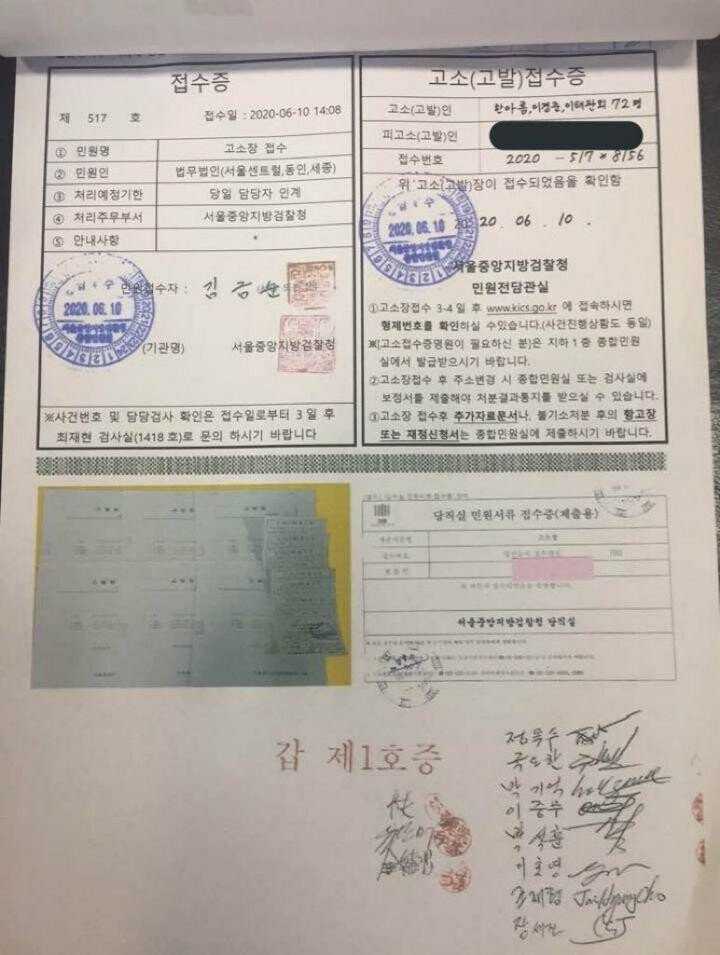 접수증
제 517 호
접수일 : 2020-06-10 14:08
① 민원명 고소장 접수
② 민원인 법무법인(서울센트럴,동인,세종)
③ 처리예정기한 당일 담당자 인계
④ 처리주무부서 서울중앙지방검찰청
⑤ 안내사항 *
민원접수자 : 김금
2020.06.10
(기관명) 서울중앙지방검찰청
※사건번호 및 담당검사 확인은 접수일로부터 3일 후
최재현 검사실(1418호)로 문의 하시기 바랍니다
고소(고발)접수증
고소(고발)인 한아름,이경준,이태관외 72명
피고소(고발)인
접수번호 2020 - 517 * 8156
위 고소(고발)장이 접수되었음을 확인함
접수
2020.06.10
2020. 06. 10.
서울중앙지방검찰청
민원전담관실
①고소장접수 3-4일 후 www.kics.go.kr 에 접속하시면
형제번호를 확인하실 수있습니다.(사건진행상황도 동일)
※[고소접수증명원이 필요하신 분]은 지하 1층 종합민원
실에서 발급받으시기 바랍니다.
②고소장접수 후 주소변경 시 종합민원실 또는 검사실에
보정서를 제출해야 처분결과통지를 받으실 수 있습니다.
③고소장 접수후 추가자료문서나, 불기소처분 후의 항고장
또는 재정신청서는 종합민원실에 제출하시기 바랍니다.
당직실 민원서류 접수증(제출용)
고소장
서울중앙지방검찰청 당직실
갑 제1호증
정묵수
국요한
박기억
이중무
박석훈
이호영
조재형 JaeHyungCho
장세진